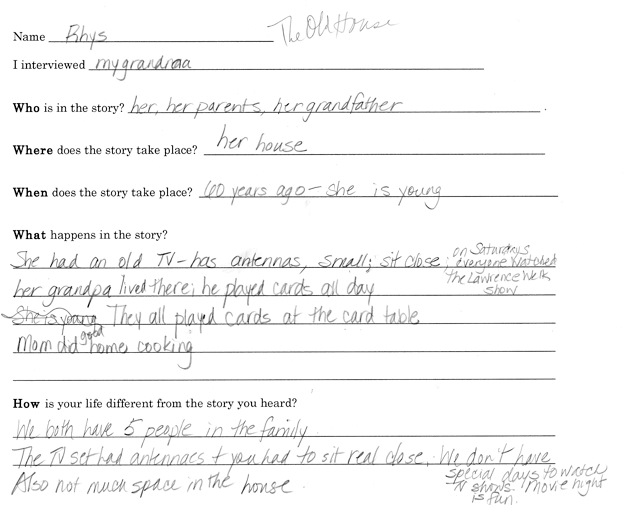 Name Rhys The Old House
I interviewed my grandmaa
Who is in the story? her, her parents, her grandfather.
Where does the story take place? her house
When does the story take place? 60 years ago - she is young
What happens in the story?
She had an old TV - has antennas, small; sit close; on Saturdays everyone watched the Lawrence Welk show
her grandpa lived there; he played cards all day
She is young They all played cards at the card table
Mom did good home cooking
How is your life different from the story you heard?
We both have 5 people in the family
The TV set had antennaes + you had to sit real close. We don't have special days to watch TV shows. Movie night is fun.
Also not much space in the house.